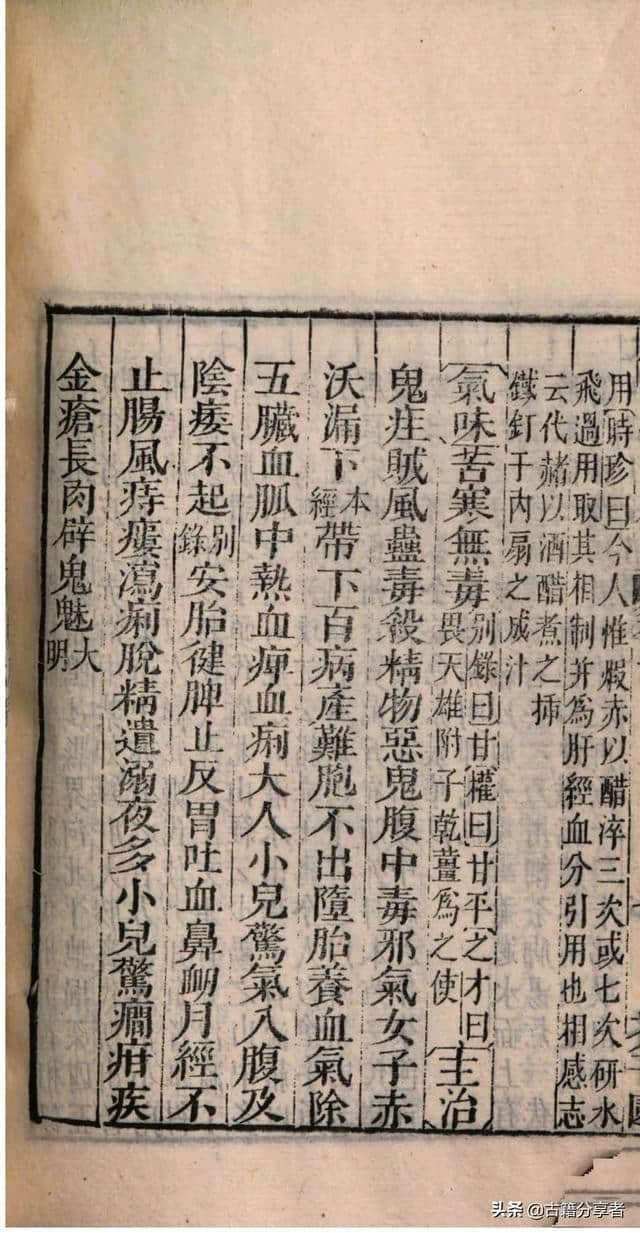 用時珍曰今人惟煆赤以醋淬三次或七次研水
飛過用取其相制并為肝經血分引用也相感志
云代赭以酒醋煮之揷
鐵釘于內扇之成汁
氣味苦寒無毒
別錄曰甘權曰甘平之才曰
畏天雄附子乾薑為之使
主治
鬼疰賊風蠱毒殺精物惡鬼腹中毒邪氣女子赤
沃漏下本經帶下百病產難胞不出墮胎養血氣除
五臟血脈中熱血痺血痢大人小兒驚氣入腹及
陰痿不起別錄安胎健脾止反胃吐血鼻衄月經不
止腸風痔瘻瀉痢脫精遺溺夜多小兒驚癎疳疾
金瘡長肉辟鬼魅大明
头条@古籍分享者